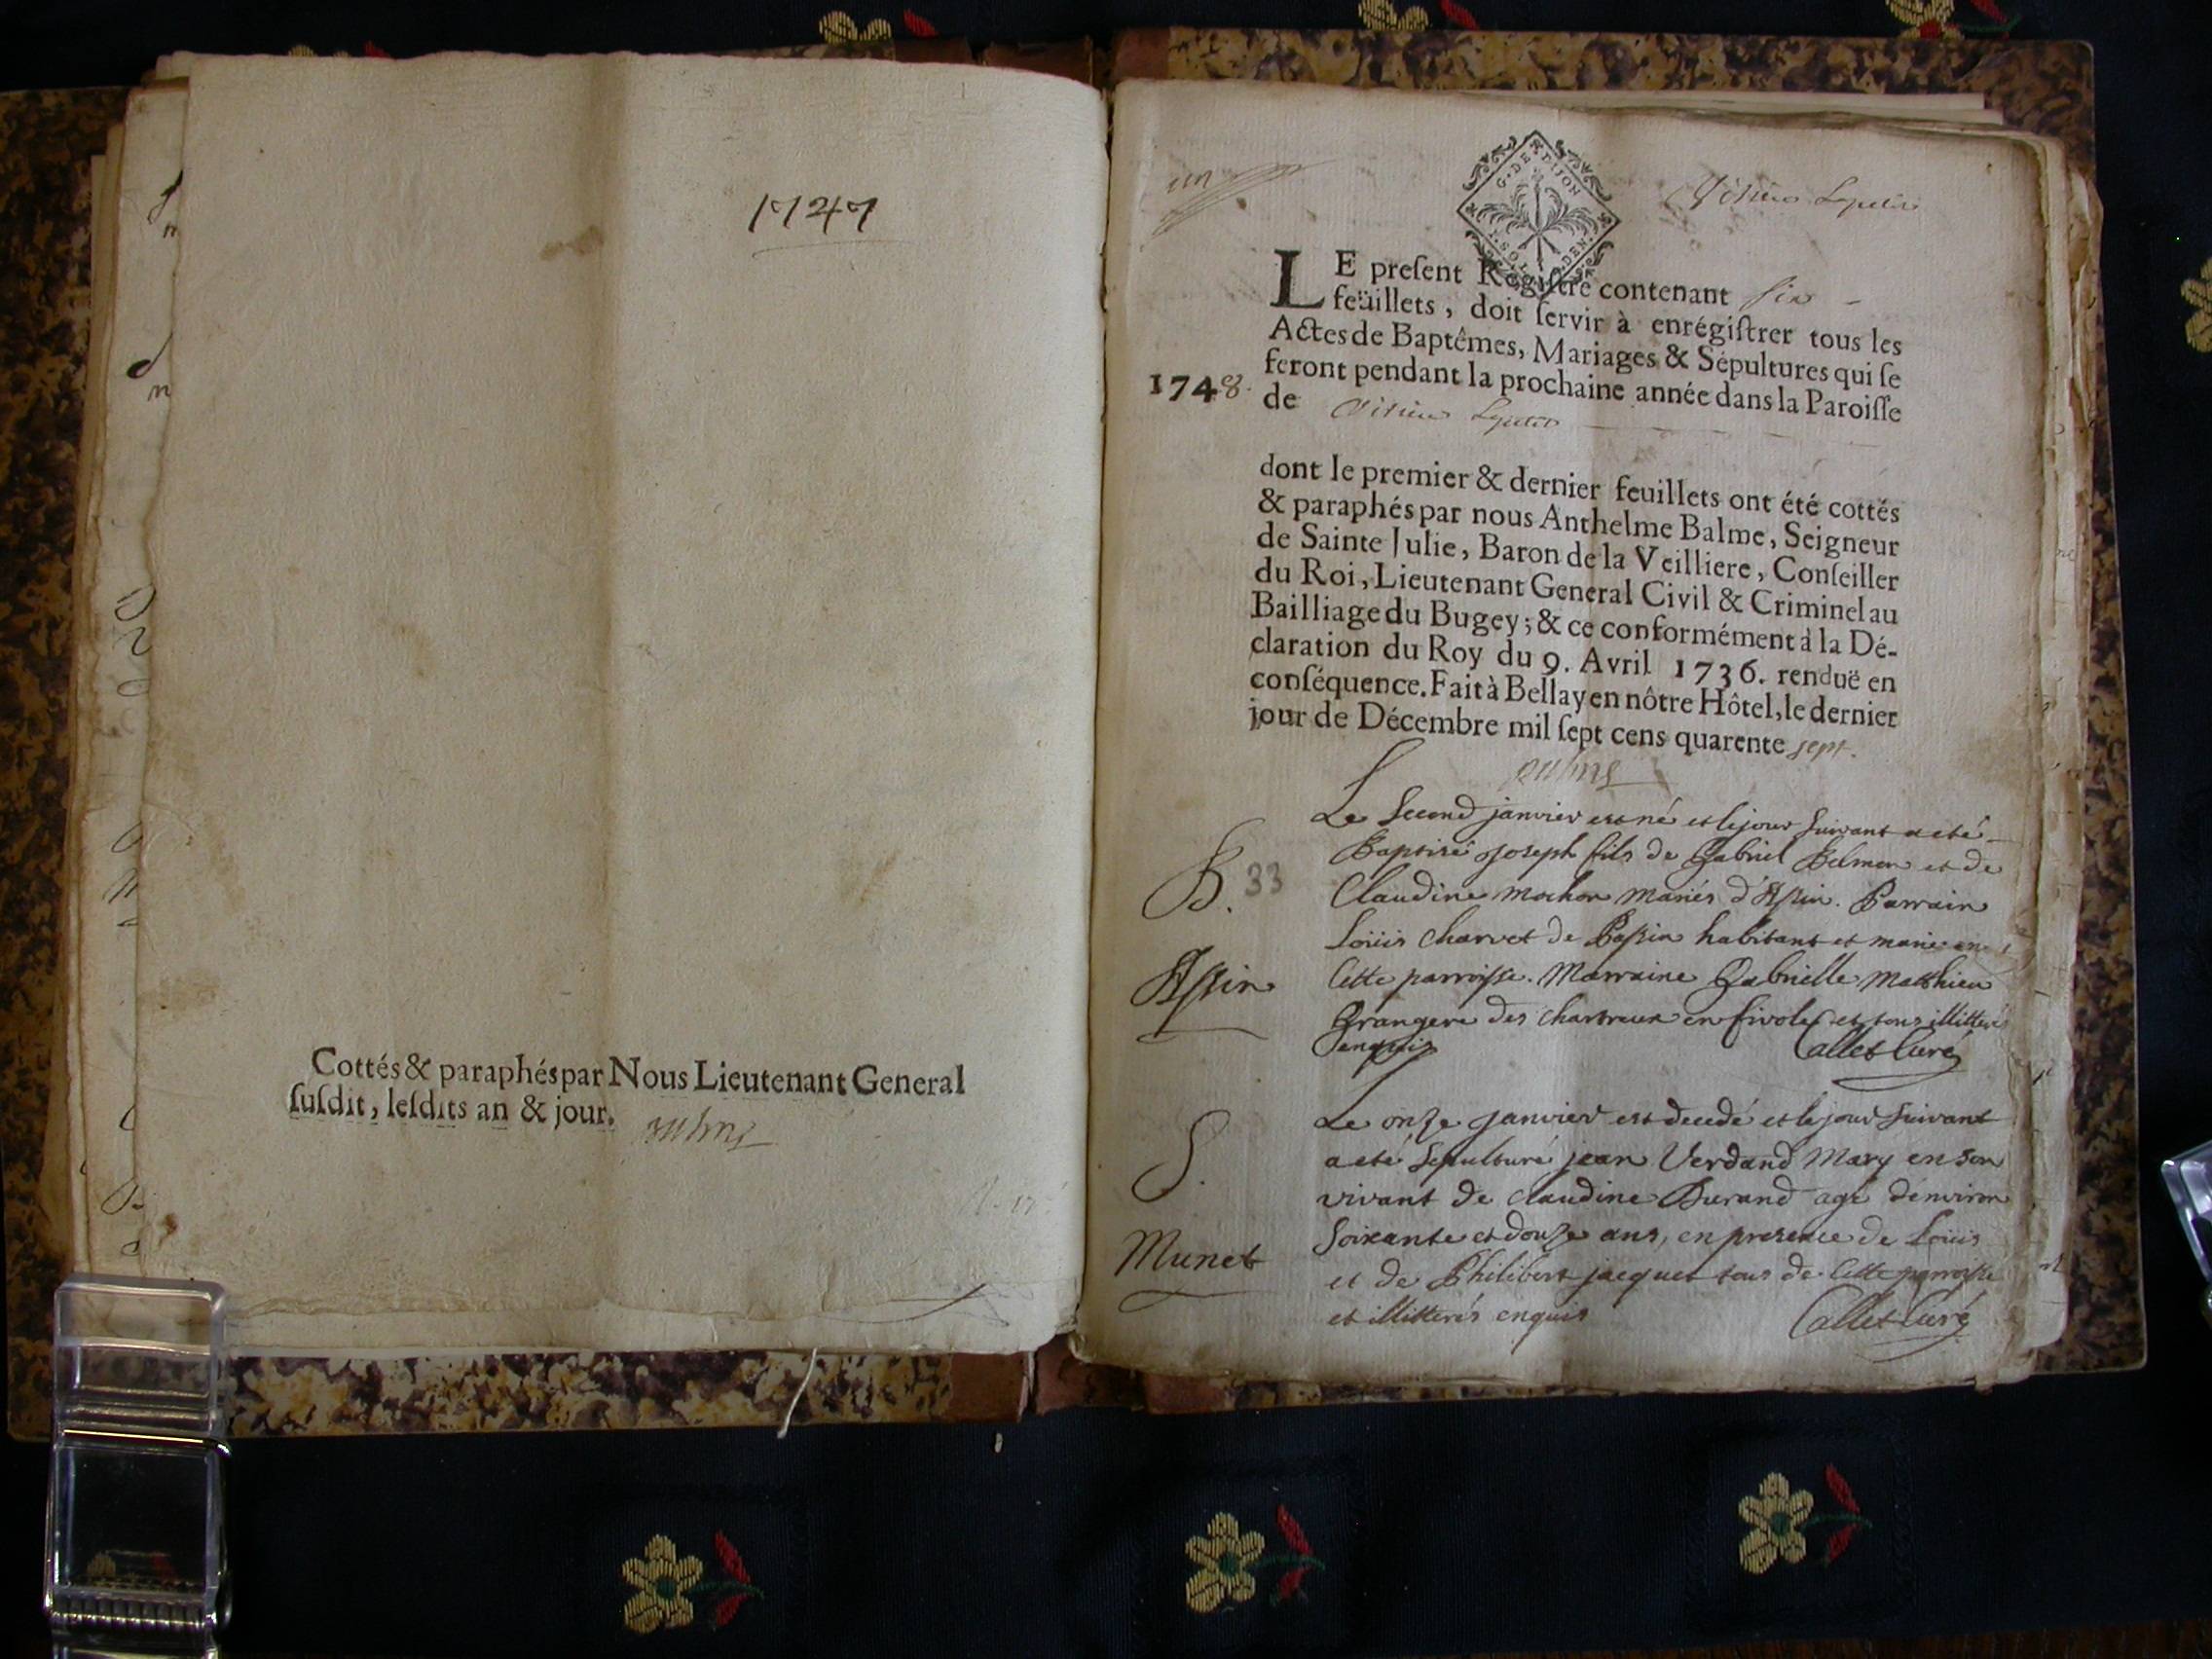 1747
Cottés & paraphés par Nous Lieutenant General
susdit, lesdits an & jour.
un
G. DE DIJON
SOL
DEN.
LE present Registre contenant six
feüillets, doit servir à enrégistrer tous les
Actes de Baptêmes, Mariages & Sépultures qui se
feront pendant la prochaine année dans la Paroisse
1748.
de
dont le premier & dernier feuillets ont été cottés
& paraphés par nous Anthelme Balme, Seigneur
de Sainte Julie, Baron de la Veilliere, Conseiller
du Roi, Lieutenant General Civil & Criminel au
Bailliage du Bugey; & ce conformément à la Dé-
claration du Roy du 9. Avril 1736. renduë en
conséquence. Fait à Bellay en nôtre Hôtel, le dernier
jour de Décembre mil sept cens quarente sept.
Le Second janvier est né et le jour suivant a eté
Baptisé joseph fils de Gabriel Belmon et de
B. 33
Claudine mochon mariés d'Assin. Parrain
Loüis charvet de habitant et marié en
Assin
Cette parroisse. Marraine Gabrielle Matthieu
Grangere des chartreux en et tous illitterés
enquis Callet Curé
Le onze janvier est decedé et le jour suivant
S.
a eté sepulturé jean Verdand Mary en son
vivant de claudine Durand agé d'environ
soixante et douze ans, en presence de Loüis
Munet
et de Philibert jacquet tous de Cette parroisse
et illitterés enquis Callet Curé